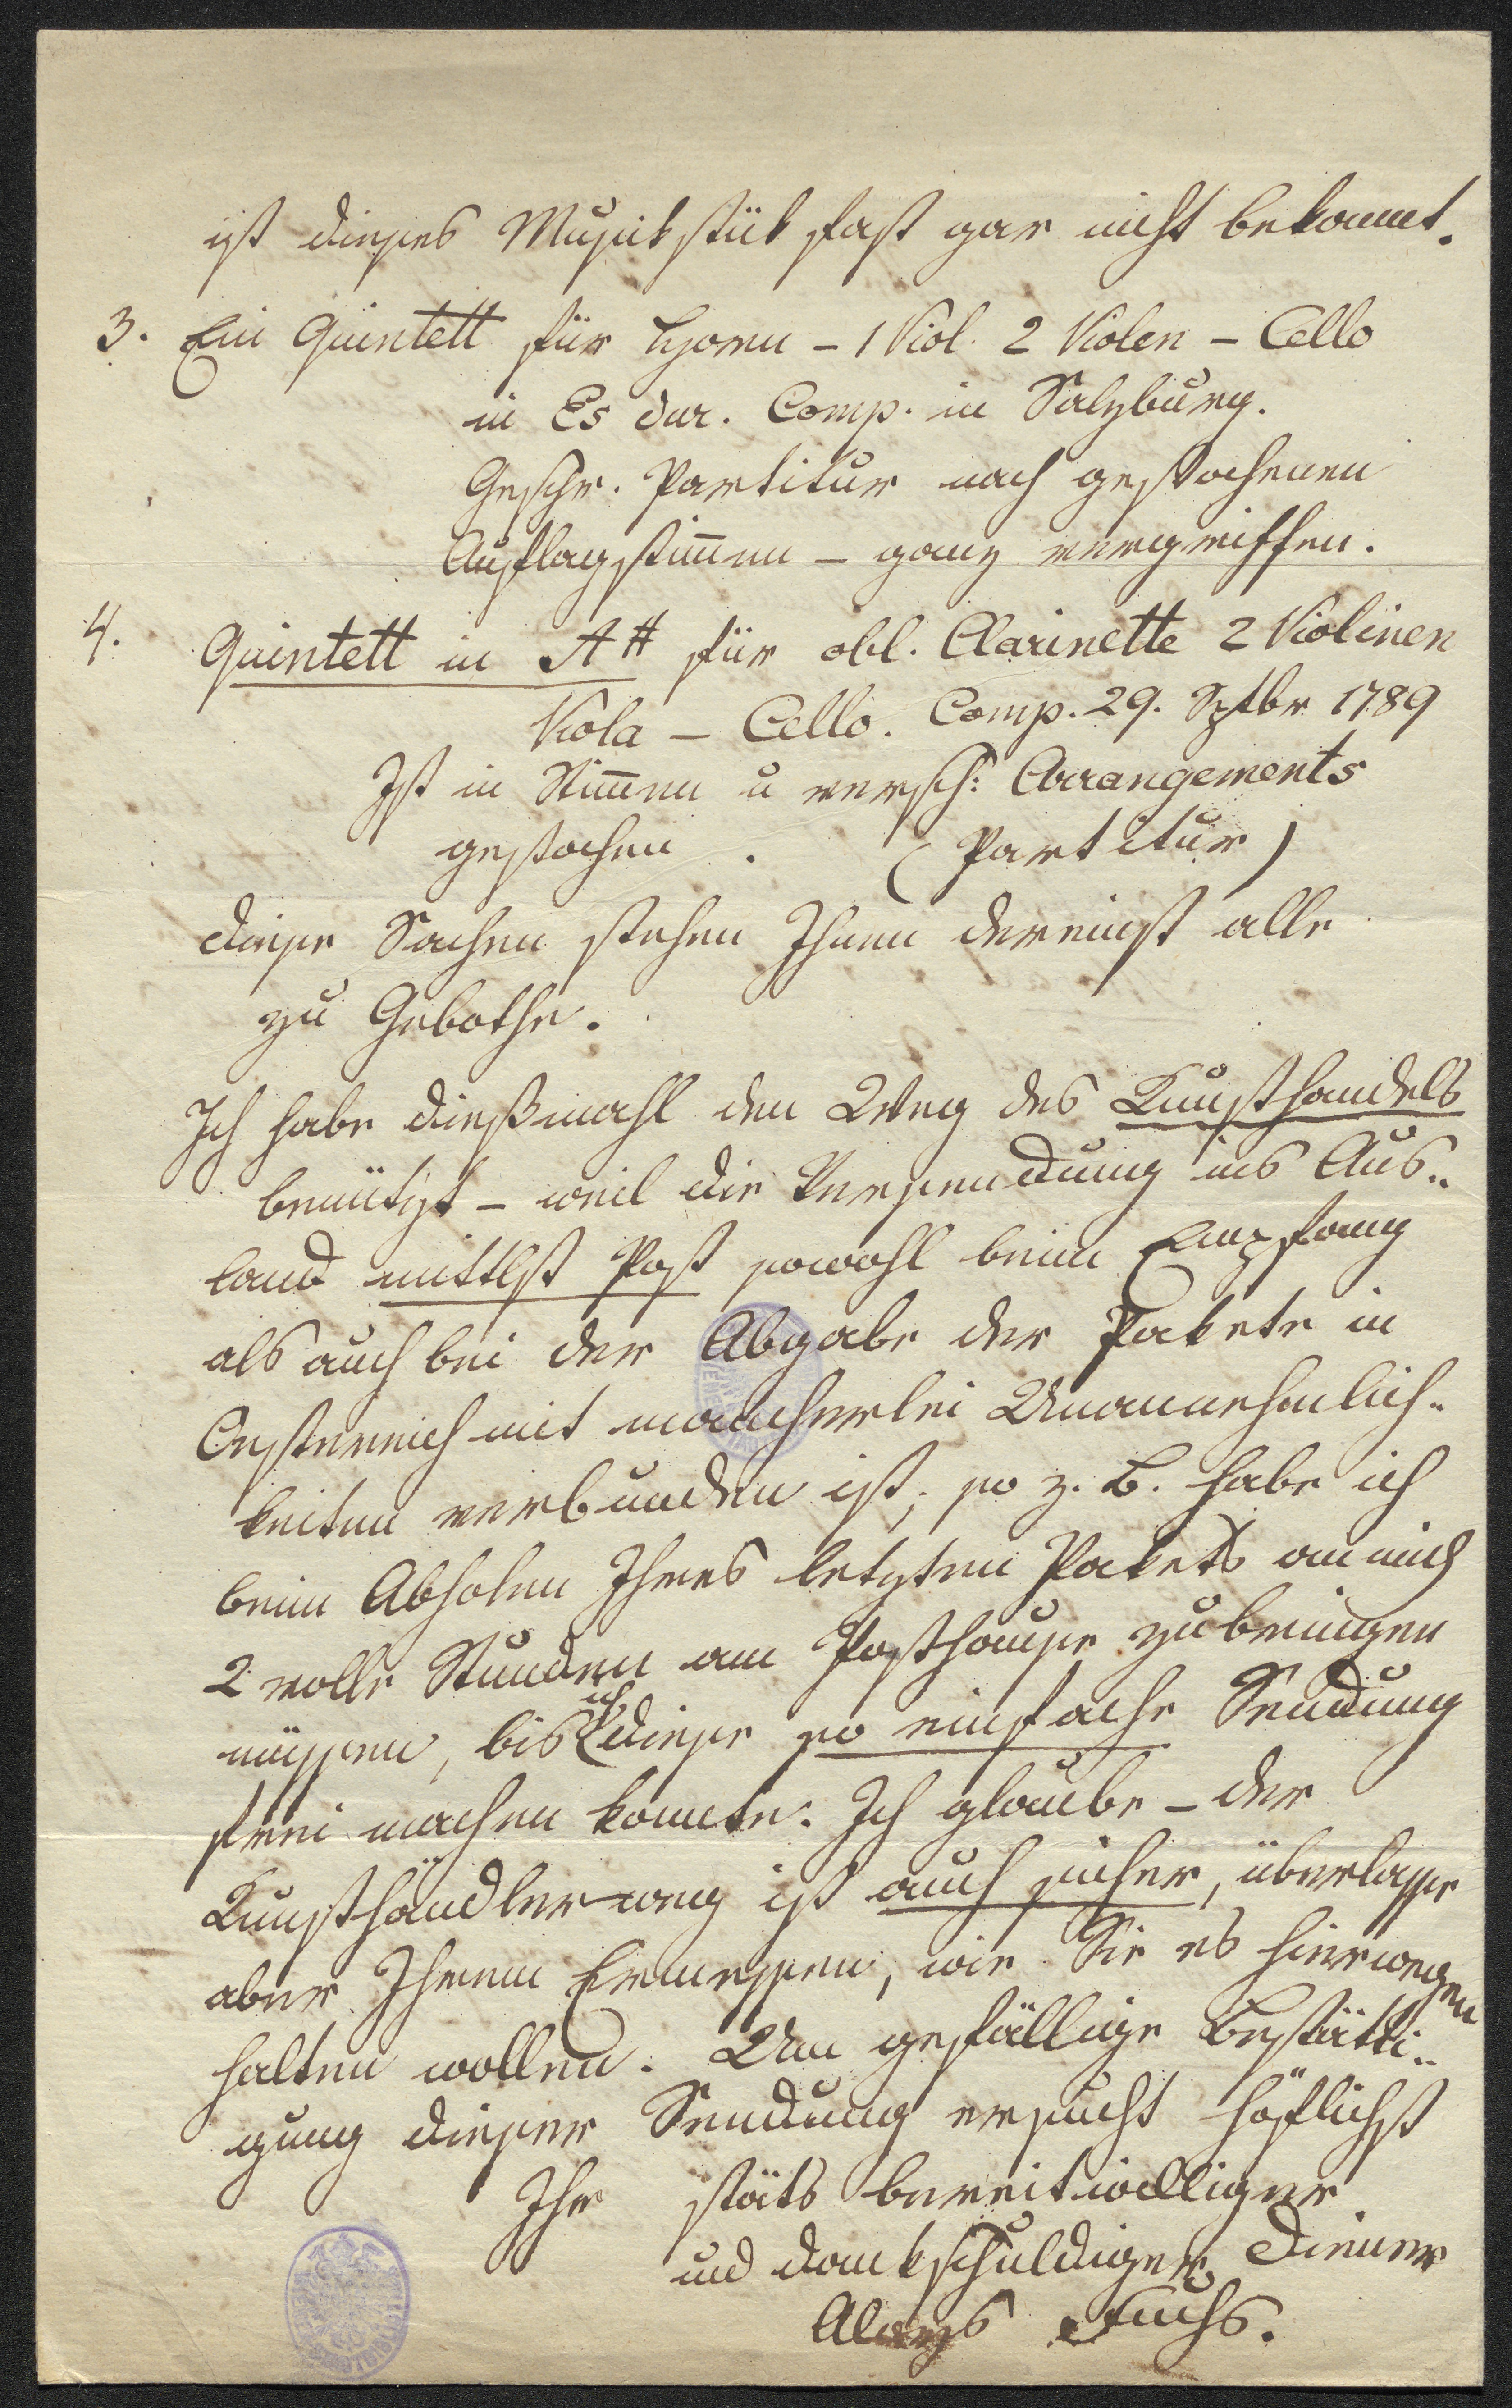 ist dieses Musikstük fast gar nicht bekannt.
3. Ein Quintett für Horn – 1 Viol. 2 Violen – Cello
in Es dur. Comp. in Salzburg.
Geschr. Partitur nach gestochenen
Auflagstim̅en – ganz vergriffen.
4. Quintett in A# für obl. Clarinette 2 Violinen
Viola – Cello. Comp. 29. Sptbr 1789
Ist in Stim̅en u versch: Arrangements
gestochen. (Partitur)
diese Sachen stehen Ihnen dereinst alle
zu Gebothe.
Ich habe dießmahl den Weg des Kunsthandels
benützt – weil die Versendung ins Aus-
land mittlst Post sowohl beim Empfang
als auch bei der Abgabe der Pakete in
Oesterreich mit mancherlei Unannehmlich-
keiten verbunden ist; so z. B. habe ich
beim Abholen Ihres letzten Pakets an mich
2 volle Stunden am Posthause zubringen
müssen, bis ich diese so einfache Sendung
frei machen konnte. Ich glaube – der
Kunsthändlerweg ist auch sicher, überlasse
aber Ihrem Ermessen, wie Sie es hierwegen
halten wollen. Um gefällige Bestätti-
gung dieser Sendung ersucht höflichst
Ihr stäts bereitwilliger
und dankschuldiger Diener
Aloys Fuchs.